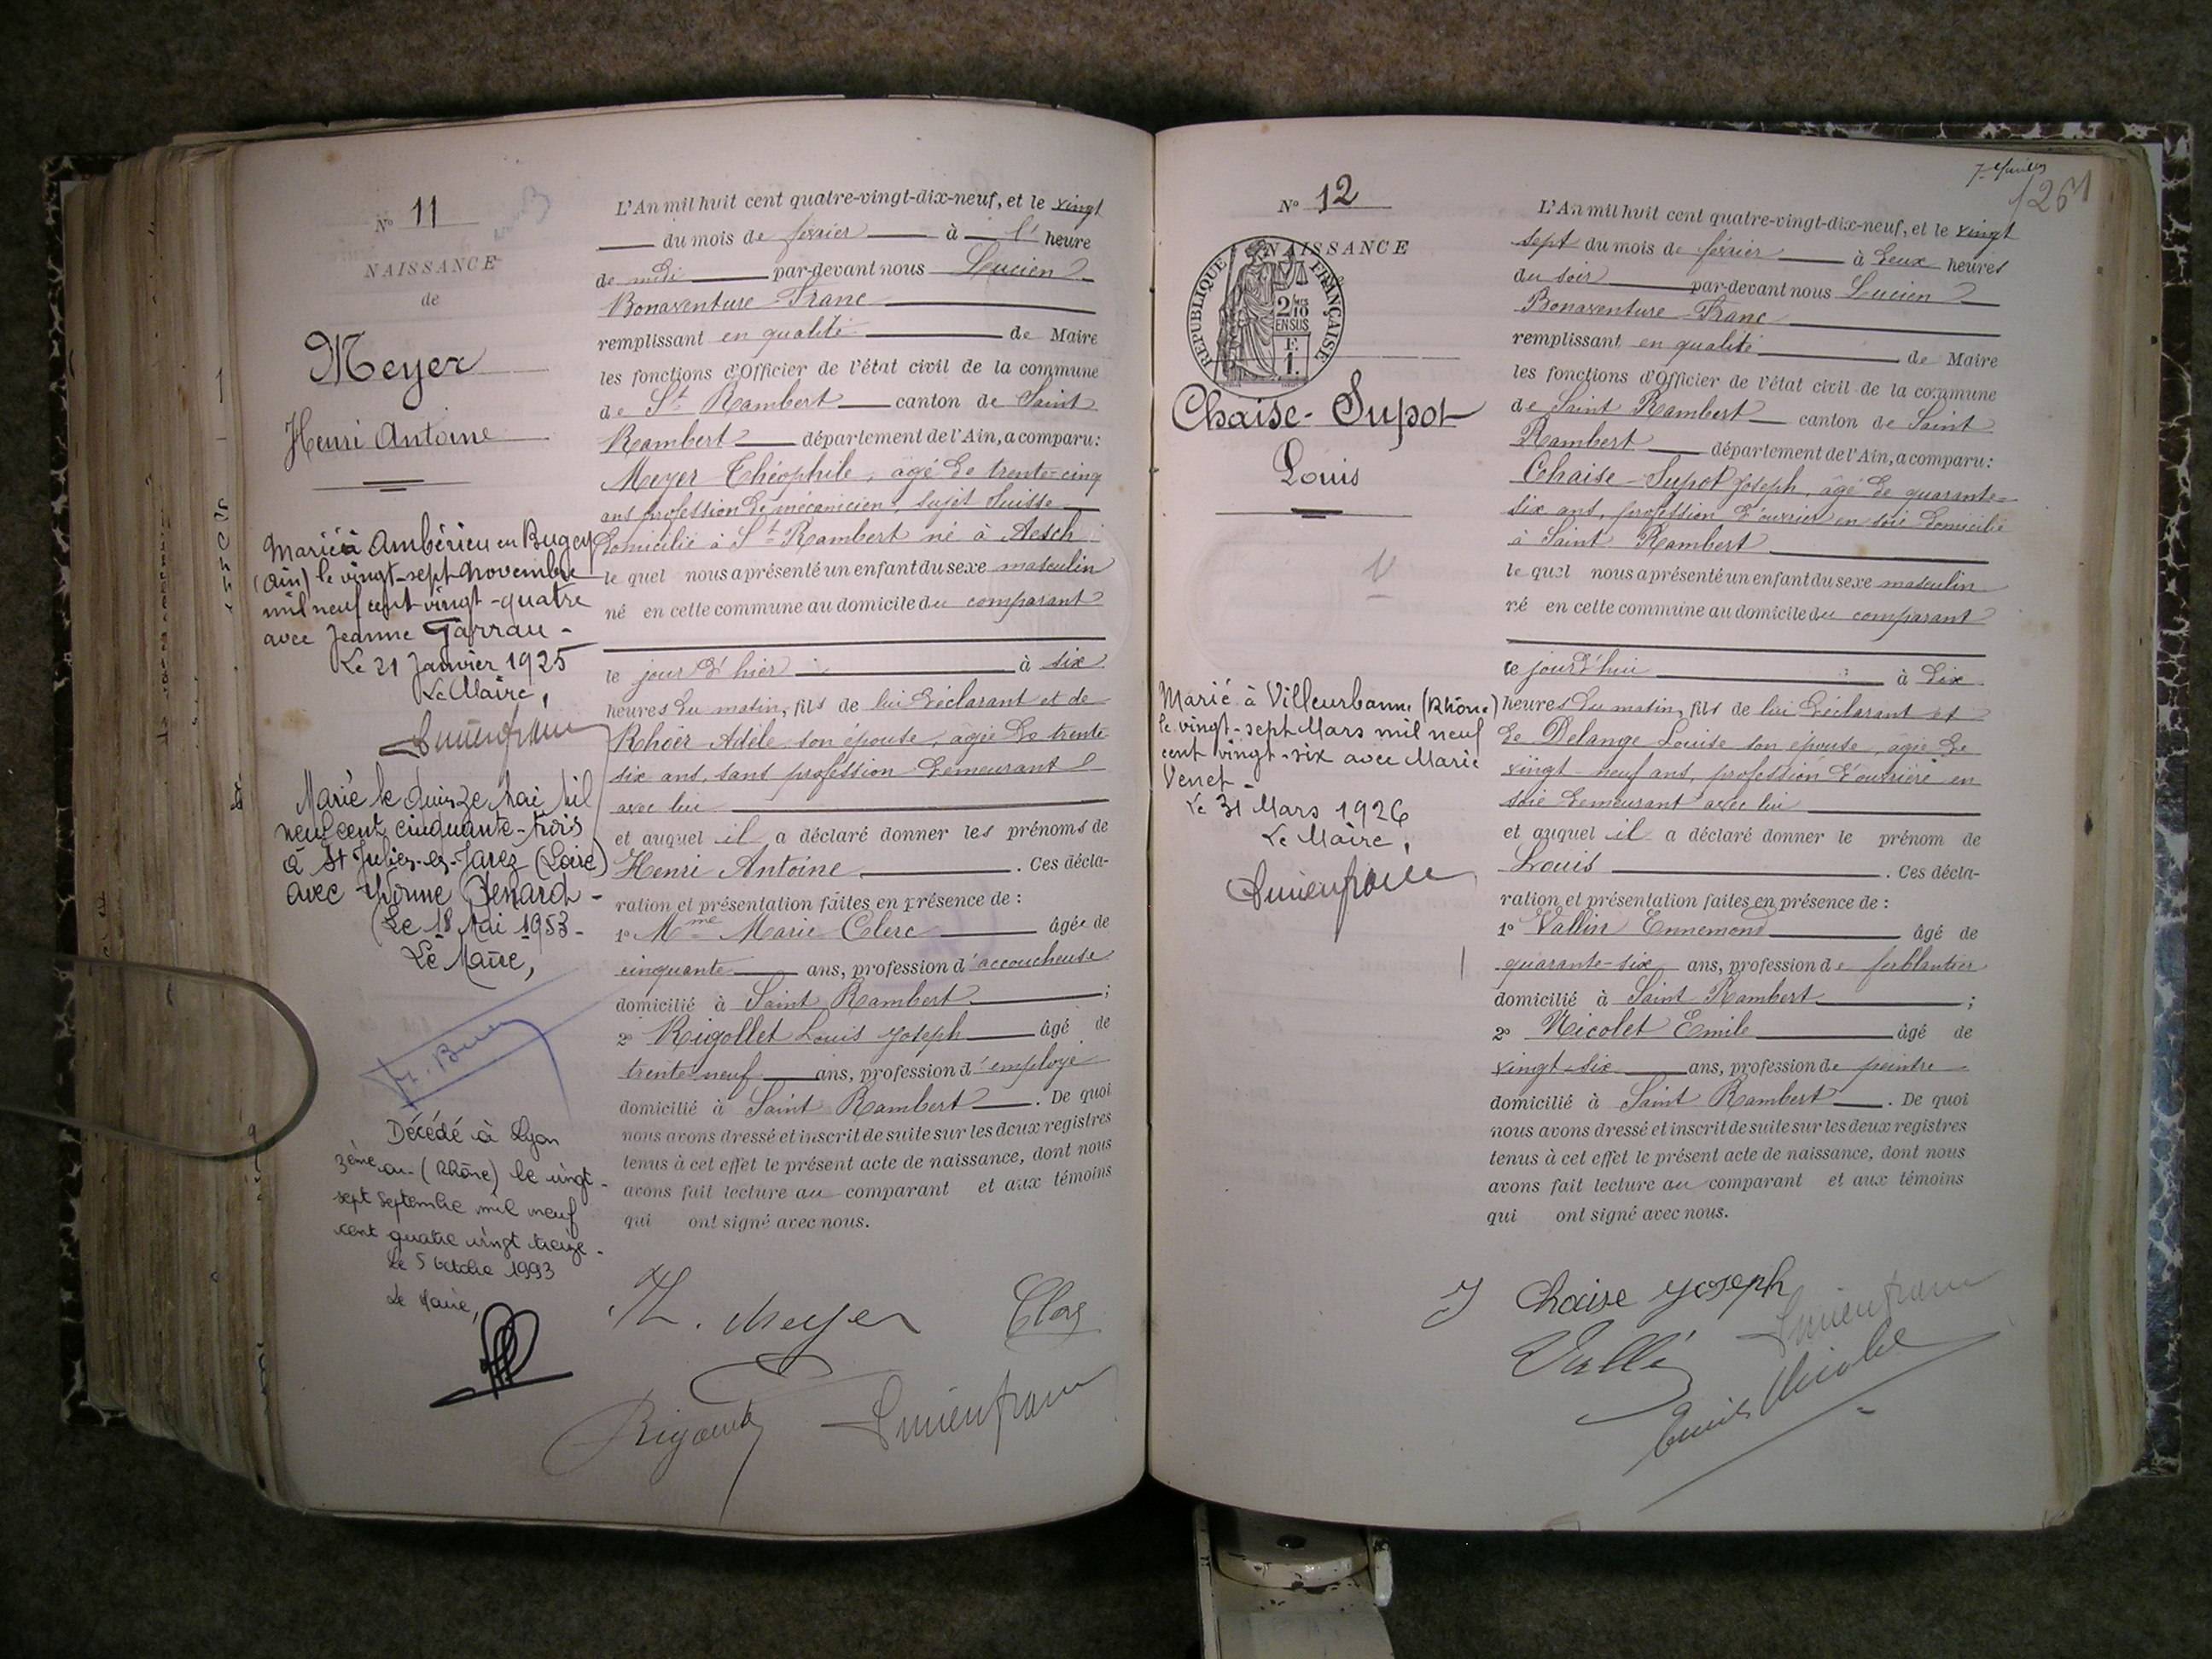 N° 11
NAISSANCE
de
Meyer
Henri Antoine
Marié à Ambérieu en Bugey
(Ain) le vingt-sept novembre
mil neuf cent vingt-quatre
avec Jeanne Garrau -
Le 21 Janvier 1925
Le Maire,
Marié le quinze Mai Mil
neuf cent cinquante-trois
à St Julien-en-Jarez (Loire)
avec Yvonne Benard -
Le 18 Mai 1953 -
Le Maire,
Décédé à Lyon
3ème arr (Rhône) le vingt-
sept septembre mil neuf
cent quatre vingt treize -
Le 5 octobre 1993
Le Maire,
L'An mil huit cent quatre-vingt-dix-neuf, et le vingt
du mois de février à l' heure
de midi par-devant nous Lucien
Bonaventure Franc
remplissant en qualité de Maire
les fonctions d'Officier de l'état civil de la commune
de St Rambert canton de Saint
Rambert département de l'Ain, a comparu:
Meyer Théophile, âgé de trente-cinq
ans profession de mécanicien, sujet Suisse
domicilié à St Rambert né à Aesch
le quel nous a présenté un enfant du sexe masculin
né en cette commune au domicile du comparant
le jour d'hier à six
heures du matin, fils de lui déclarant et de
Rhoër Adèle son épouse, âgée de trente
six ans, sans profession demeurant
avec lui
et auquel il a déclaré donner les prénoms de
Henri Antoine . Ces décla-
ration et présentation faites en présence de :
1° Mme Marie Clerc âgée de
cinquante ans, profession d'accoucheuse
domicilié à Saint Rambert ;
2° Rigollet Louis Joseph âgé de
trente-neuf ans, profession d'employé
domicilié à Saint Rambert . De quoi
nous avons dressé et inscrit de suite sur les deux registres
tenus à cet effet le présent acte de naissance, dont nous
avons fait lecture au comparant et aux témoins
qui ont signé avec nous.
Th. Meyer Clerc
Lucien franc
126
N° 12
NAISSANCE
REPUBLIQUE FRANÇAISE
2/10 MES
EN SUS
F.
1.
Chaise-Supot
Louis
Marié à Villeurbanne (Rhône)
le vingt-sept Mars mil neuf
cent vingt-six avec Marie
Venet -
Le 31 Mars 1926
Le Maire,
Lucien franc
L'An mil huit cent quatre-vingt-dix-neuf, et le vingt
sept du mois de février à deux heures
du soir par-devant nous Lucien
Bonaventure Franc
remplissant en qualité de Maire
les fonctions d'Officier de l'état civil de la commune
de Saint Rambert canton de Saint
Rambert département de l'Ain, a comparu:
Chaise-Supot Joseph, âgé de quarante-
six ans, profession d'ouvrier en soie domicilié
à Saint Rambert
le quel nous a présenté un enfant du sexe masculin
né en cette commune au domicile du comparant
ce jourd'hui à dix
heures du matin, fils de lui déclarant et
de Delange Louise son épouse, âgée de
vingt-neuf ans, profession d'ouvrière en
soie demeurant avec lui
et auquel il a déclaré donner le prénom de
Louis . Ces décla-
ration et présentation faites en présence de :
1° Vallin Ennemond âgé de
quarante-six ans, profession de ferblantier
domicilié à Saint Rambert ;
2° Nicolet Emile âgé de
vingt-six ans, profession de peintre
domicilié à Saint Rambert . De quoi
nous avons dressé et inscrit de suite sur les deux registres
tenus à cet effet le présent acte de naissance, dont nous
avons fait lecture au comparant et aux témoins
qui ont signé avec nous.
Chaise Joseph
Lucien franc